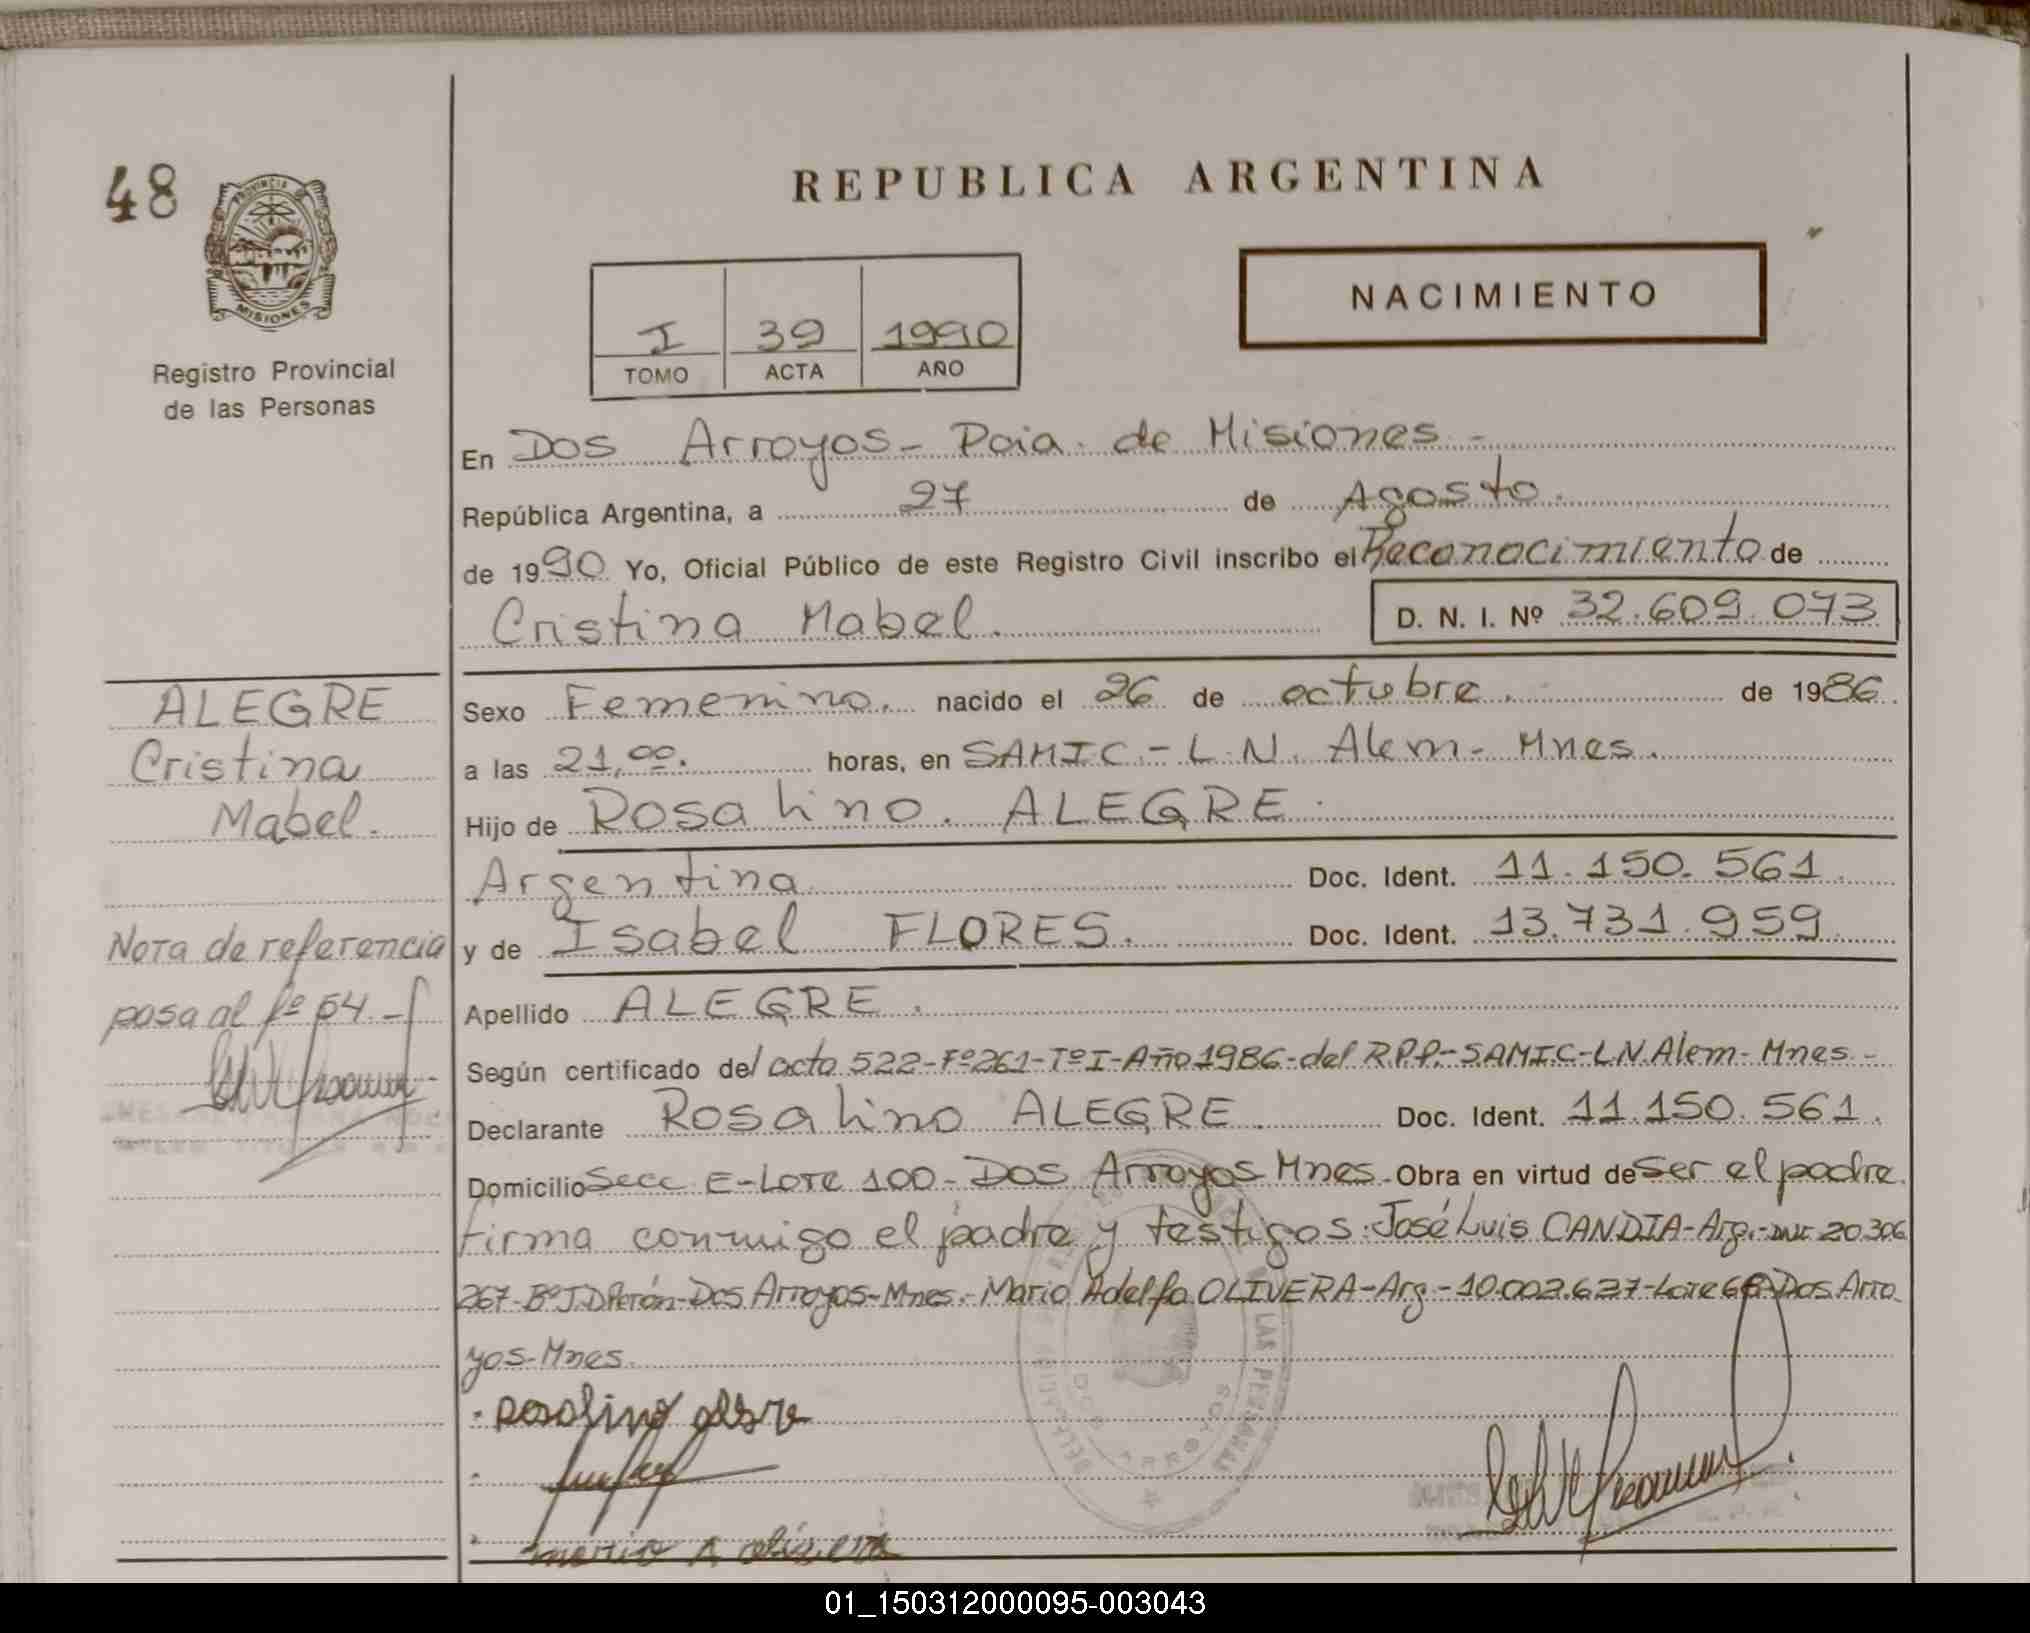 48
PROVINCIA DE
MISIONES
Registro Provincial
de las Personas
REPUBLICA ARGENTINA
I 39 1990
TOMO ACTA AÑO
NACIMIENTO
En Dos Arroyos - Pcia. de Misiones -
República Argentina, a 27 de Agosto.
de 1990 Yo, Oficial Público de este Registro Civil inscribo el Reconocimiento de
Cristina Mabel. D. N. I. Nº 32.609.073
ALEGRE
Cristina
Mabel.
Nota de referencia
pasa al fº 54.-
Sexo Femenino. nacido el 26 de octubre. de 1986.
a las 21,00. horas, en SAMIC.- L.N. Alem - Mnes.
Hijo de Rosalino. ALEGRE.
Argentina Doc. Ident. 11.150.561.
y de Isabel FLORES. Doc. Ident. 13.731.959
Apellido ALEGRE.
Según certificado del acta 522-Fº261-TºI-Año1986-del R.P.P.-SAMIC-L.N.Alem-Mnes.-
Declarante Rosalino ALEGRE. Doc. Ident. 11.150.561.
Domicilio Secc E-Lote 100-Dos Arroyos Mnes. Obra en virtud de ser el padre.
Firma conmigo el padre y testigos: José Luis CANDIA-Arg.-DNI 20.306
267-BºJ.D.Perón-Dos Arroyos-Mnes.-Mario Adelfo OLIVERA-Arg.-10.002.627-Lote 66-Dos Arro
yos-Mnes.
Rosalino Alegre
Mario A Olivera
LAS PERSONAS
DOS ARROYOS
01_150312000095-003043